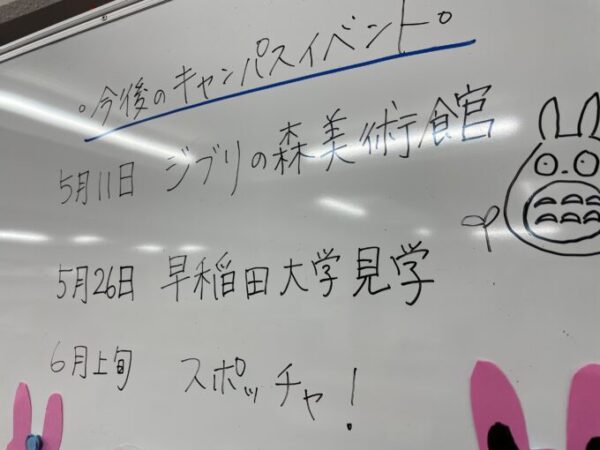 。今後のキャンパスイベント。
5月11日 ジブリの森美術館
5月26日 早稲田大学見学
6月上旬 スポッチャ!